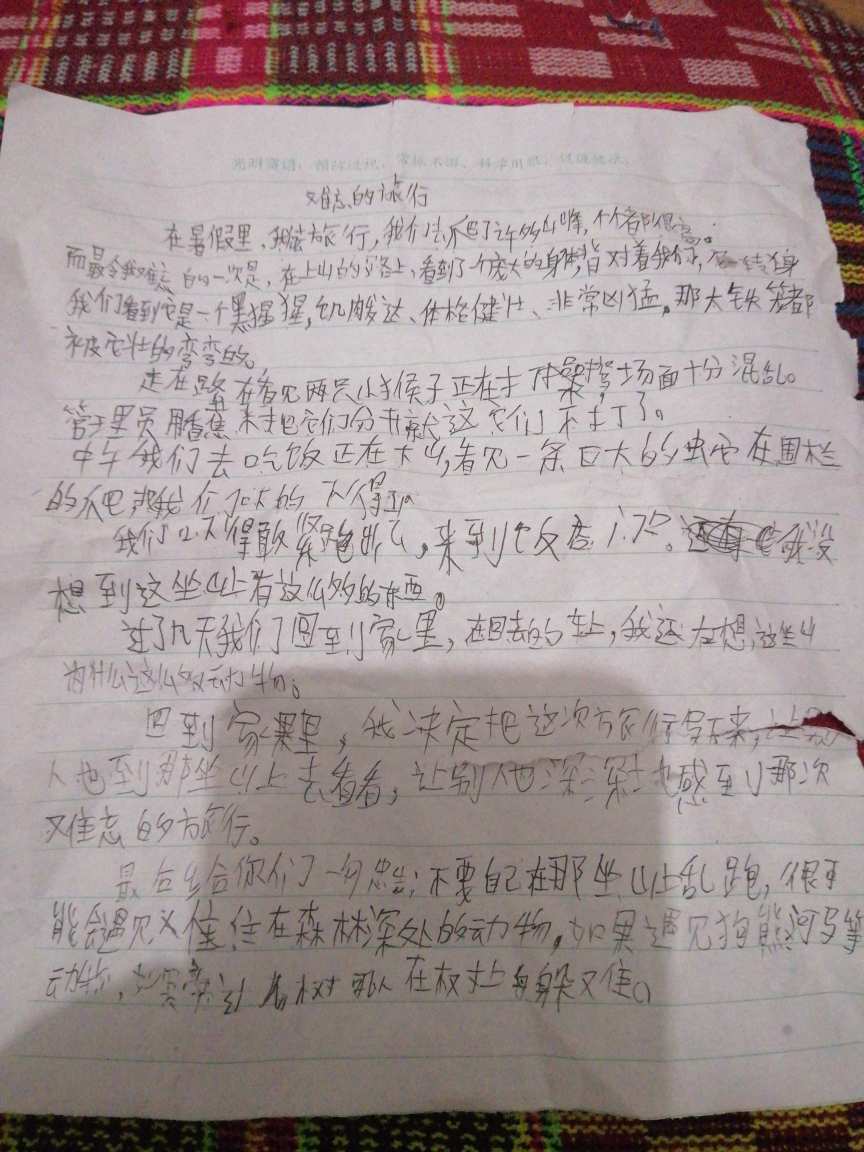 难忘的旅行
在暑假里,我去旅行,我们去爬了许多山峰,个个都很高。
而最令我难忘的一次是,在上山的路上,看到了个庞大的身体背对着我们,它一转身
我们看到它是一个黑猩猩,肌肉发达、体格健壮、非常凶猛,那大铁笼都
被它壮的弯弯的。
走在路在看见两只小猴子正在打架,场面十分混乱。
管理员用香蕉来把它们分开就这它们不打了。
中午我们去吃饭正在大山,看见一条巨大的虫它在围栏
的爬把我们下大的不得了。
我们不得敢紧跑,来到饭店 我没
想到这坐山上有这么多的东西。
过了几天我们回到家里,在回去的车上,我还在想,这坐山
为什么这么多动物。
回到家里,我决定把这次旅行写下来,让别
人也到那坐山上去看看,让别人也深深地感到那次
难忘的旅行。
最后给你们一句忠告:不要自己在那坐山上乱跑,很可
能会遇见住在森林深处的动物,如果遇见狗熊河马等
动物,树 在树上躲